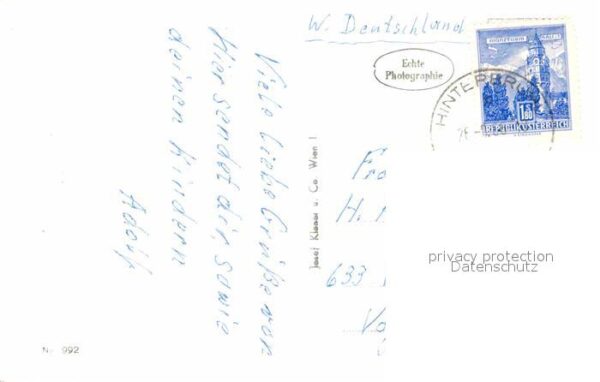 W. Deutschland
Echte
Photographie
MÜNZTURM HALL I. T.
1.80
REPUBLIK ÖSTERREICH
HINTERBR
Viele liebe Grüße von
hier sendet dir, sowie
deinen Kindern
Adolf
Josef Klener u. Co. Wien I
H.
633
privacy protection
Datenschutz
Nr. 992